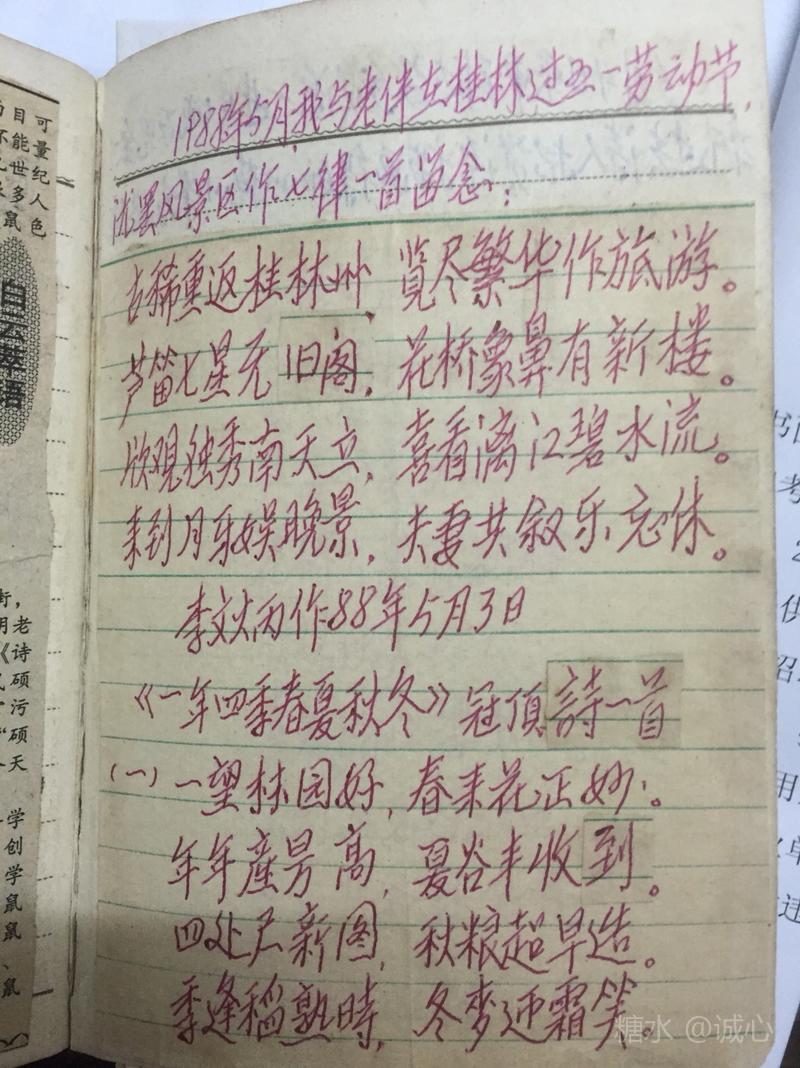 1988年5月,我与老伴在桂林过五一劳动节,
览风景区作七律一首留念:
古稀重返桂林州,览尽繁华作旅游。
芦笛七星无旧阁,花桥象鼻有新楼。
欣观独秀南天立,喜看漓江碧水流。
来到月牙娱晚景,夫妻共叙乐忘休。
李文炳作88年5月3日
《一年四季春夏秋冬》冠頂詩一首
(一)一望林园好,春来花正妙。
年年產量高,夏谷丰收到。
四处尽新图,秋粮超早造。
季逢稻熟時,冬麥迎霜笑。
目可
不能量
世纪
多人
鼠色
白云华语
街,
用老
《诗
硕
污
"硕
天
学
创
学
鼠
鼠
、
鼠
书
考
2
供
招
用
单
违
糖水 @诚心